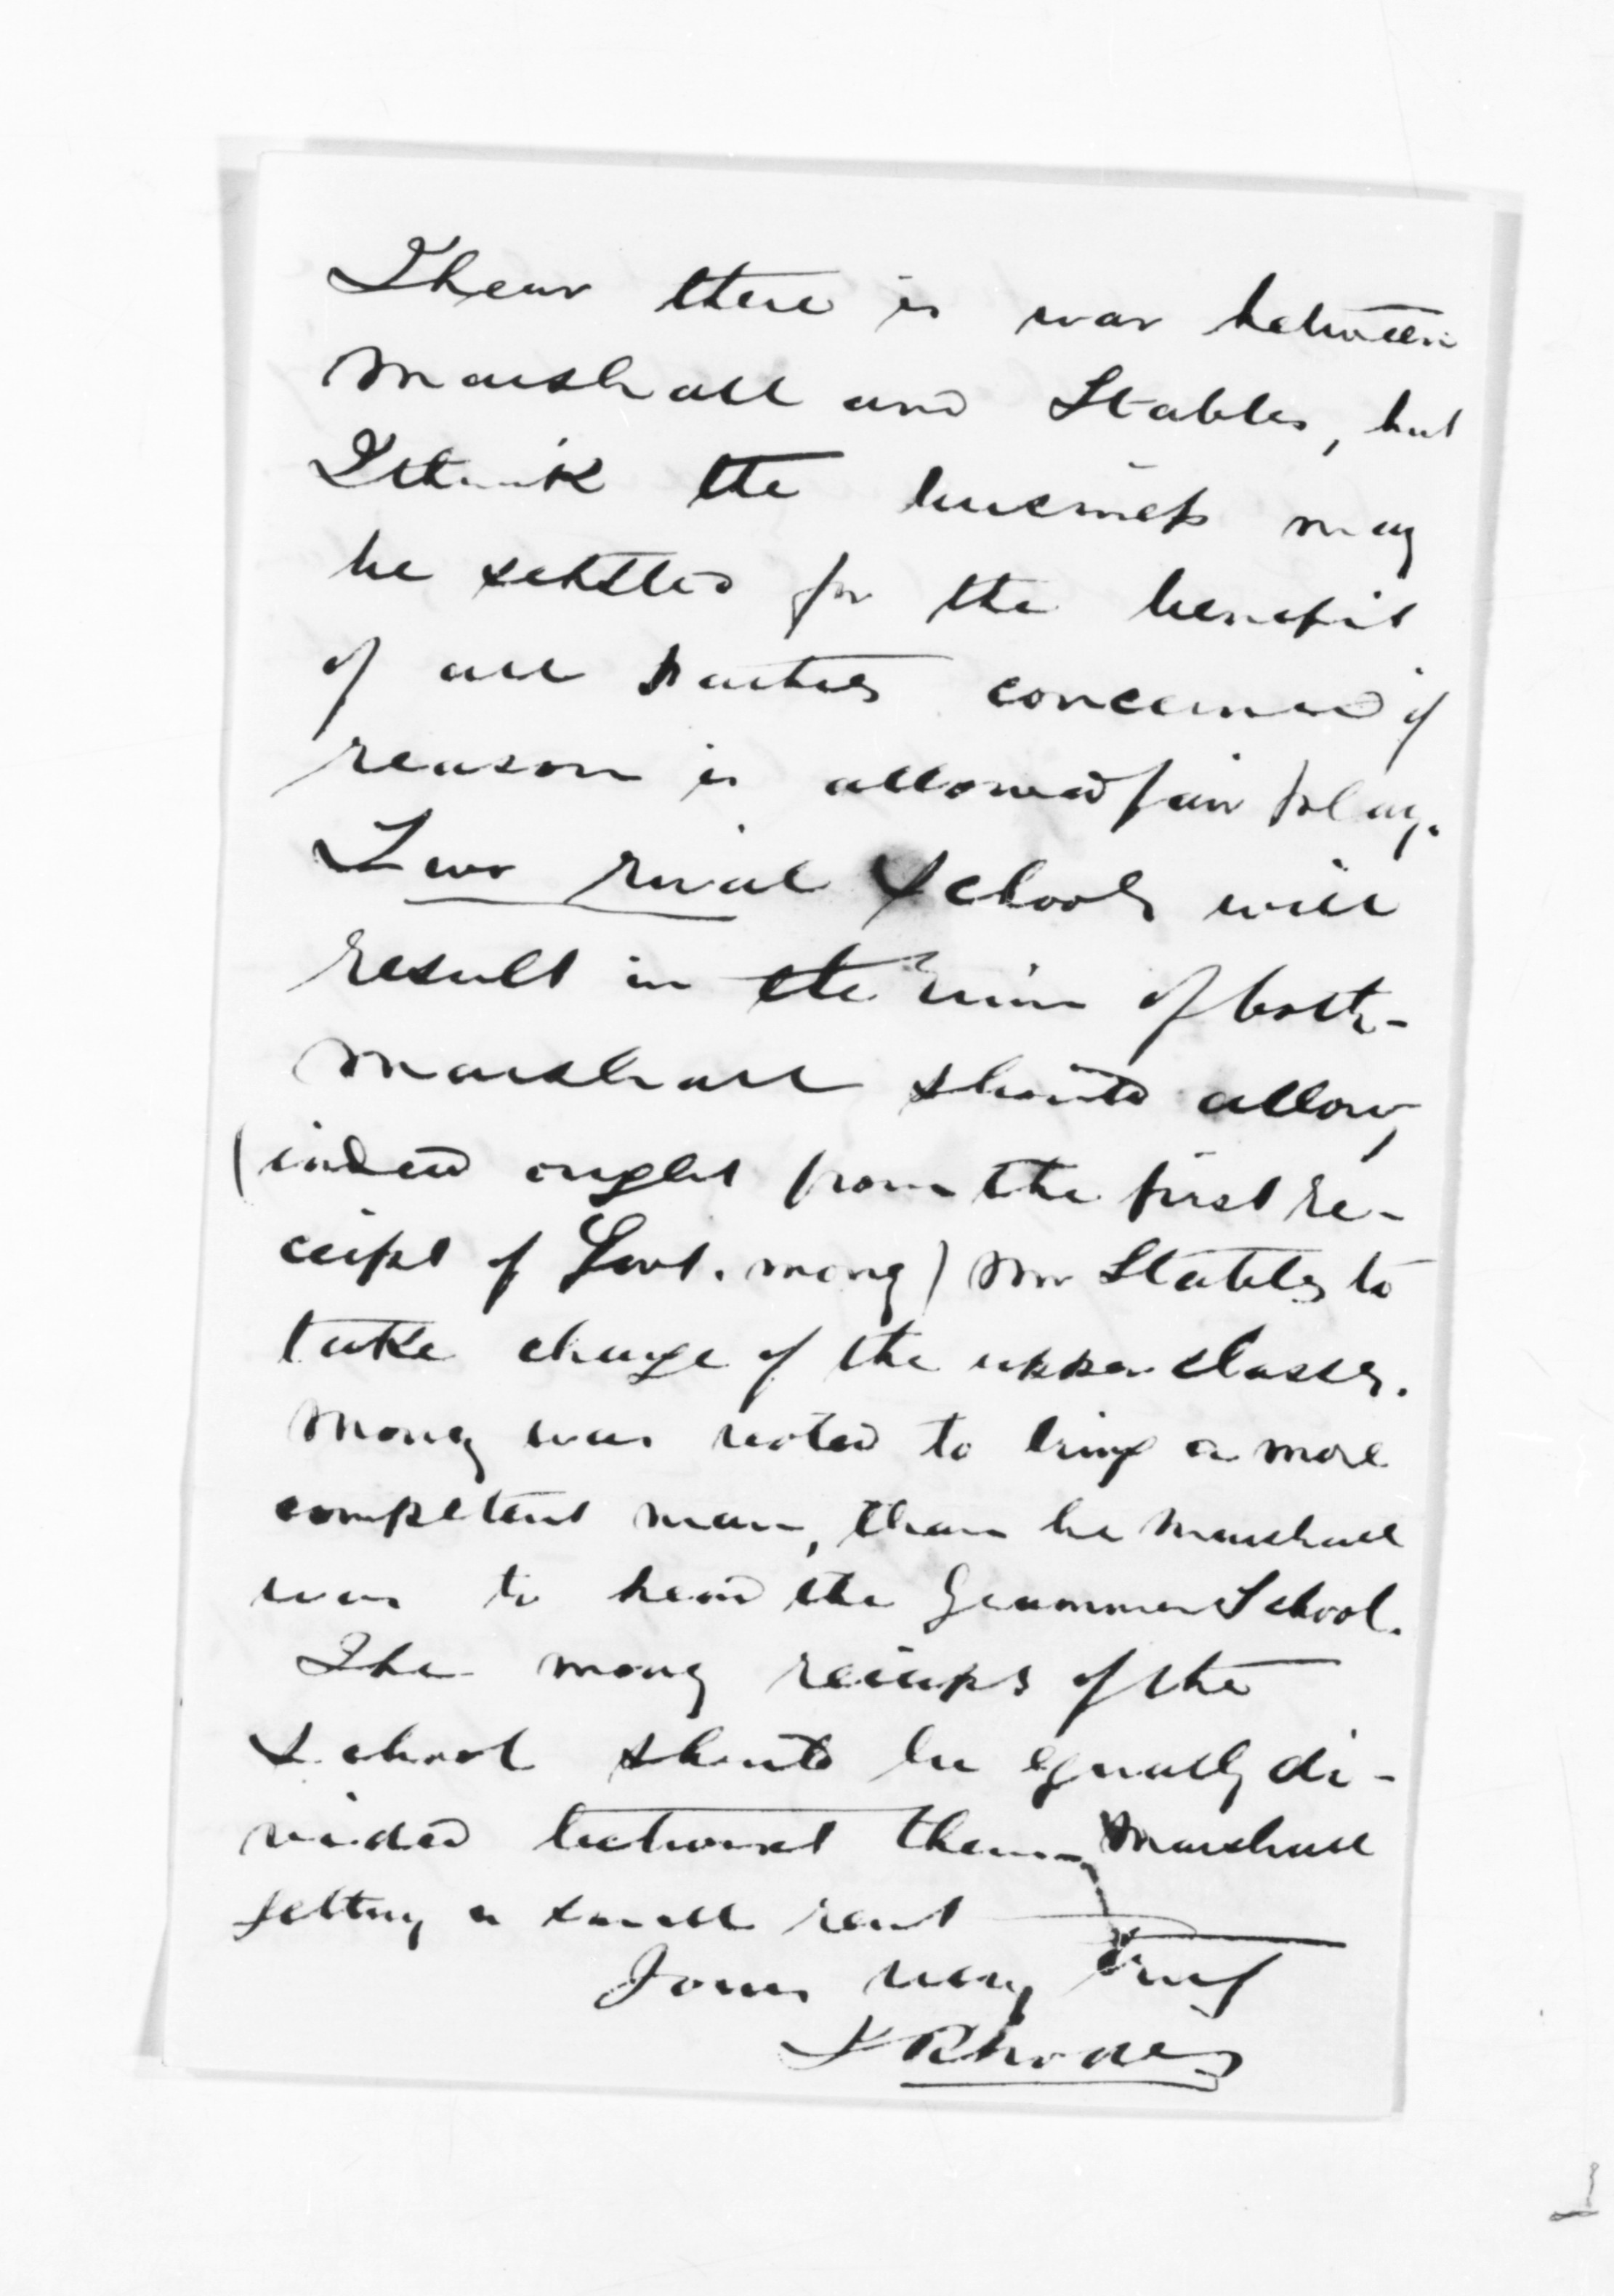 I hear there is war between
Marshall and Stables, but
I think the business may
be settled for the benefit
of all parties concerned if
reason is allowed fair play.
Two rival schools will
result in the ruin of both-
Marshall should allow,
(indeed ought from the first re-
ceipt of Govt. money) Mr Stables to
take charge of the upper classes.
Money was voted to bring a more
competent man, than he Marshall
was to head the Grammar School.
The money receipts of the
School should be equally di-
vided betwixt them- Marshall
getting a small rent
Yours very truly
Rhodes